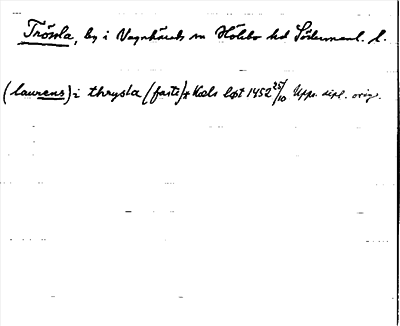 Trösla, by i Vagnhärads sn Hölebo hd Södermanl. l.
(laurens) i thrysla (faste) 1452 25/10 Upps. dipl. orig.